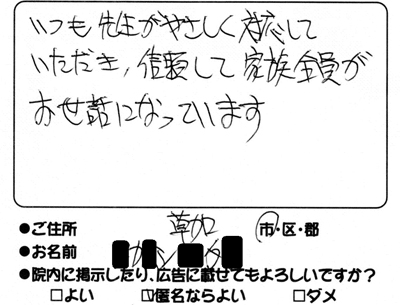 いつも先生がやさしく対応して
いただき、信頼して家族全員が
お世話になっています
●ご住所 草加 市・区・郡
●お名前
●院内に掲示したり、広告に載せてもよろしいですか?
□よい ☑匿名ならよい □ダメ